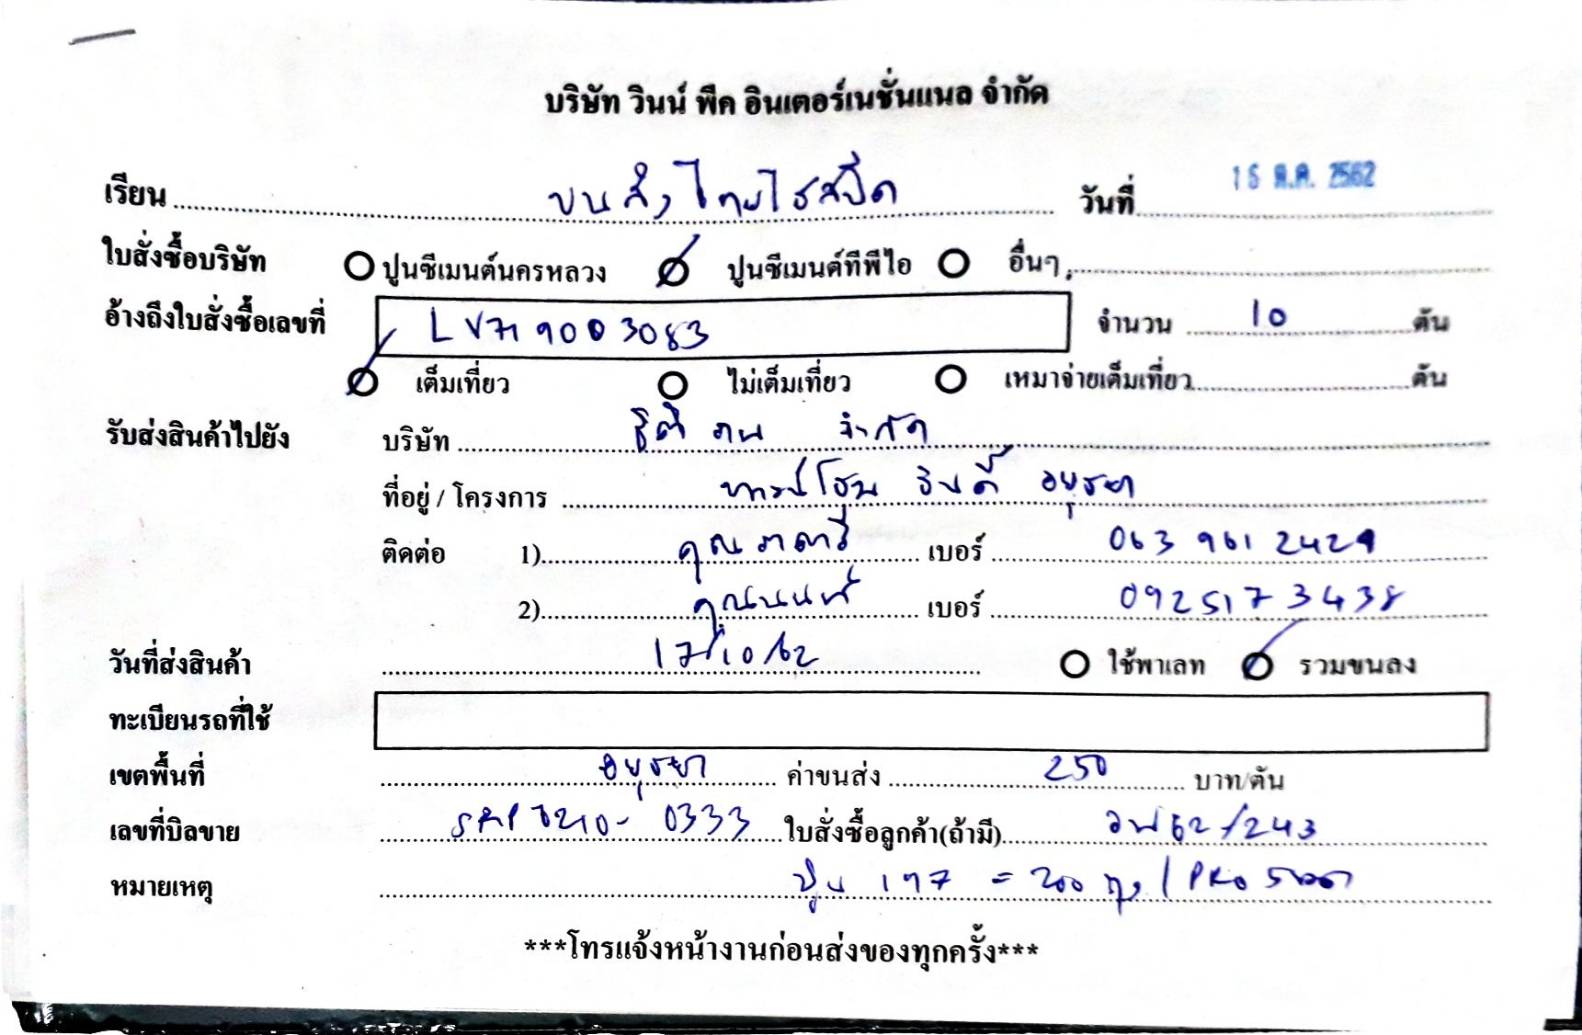 บริษัท วินน์ พีค อินเตอร์เนชั่นแนล จำกัด
เรียน ขนส่งไทยไฮสปีด วันที่ 15 ต.ค. 2562
ใบสั่งซื้อบริษัท ปูนซีเมนต์นครหลวง ปูนซีเมนต์ทีพีไอ อื่นๆ
อ้างถึงใบสั่งซื้อเลขที่ LV719003083 จำนวน 10 ตัน
เต็มเที่ยว ไม่เต็มเที่ยว เหมาจ่ายเต็มเที่ยว ตัน
รับส่งสินค้าไปยัง บริษัท จำกัด
ที่อยู่ / โครงการ อยุธยา
ติดต่อ 1) เบอร์ 063 961 2429
2) เบอร์ 0925173438
วันที่ส่งสินค้า 17/10/62 ใช้พาเลท รวมขนลง
ทะเบียนรถที่ใช้
เขตพื้นที่ อยุธยา ค่าขนส่ง 250 บาท/ตัน
เลขที่บิลขาย 6210-0333 ใบสั่งซื้อลูกค้า(ถ้ามี) 62/243
หมายเหตุ ปูน 197 = 200 ถุง / PRO
***โทรแจ้งหน้างานก่อนส่งของทุกครั้ง***